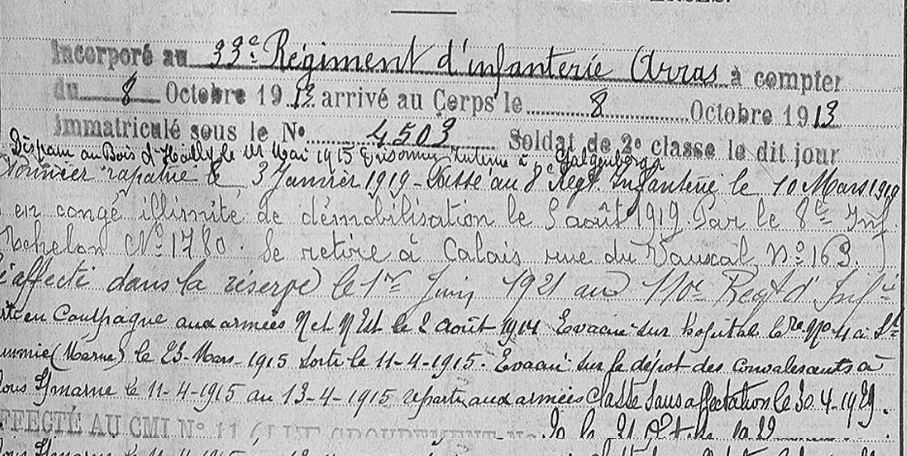 Incorporé au 33e Régiment d'infanterie Arras à compter
du 8 Octobre 1913 arrivé au Corps le 8 Octobre 1913
Immatriculé sous le No 4503 Soldat de 2e classe le dit jour
au Bois d' le 1915 Prisonnier Interné à
rapatrié le 3 Janvier 1919 - Passé au 8e Regt Infanterie le 10 Mars 1919
en congé illimité de démobilisation le 5 août 1919 Par le 8e Inf
échelon No 1780. Se retire à Calais rue du Vauxal, No 163.
affecté dans la réserve le 1er Juin 1921 au 110e Regt d' Infie
en Campagne aux armées N et N Est le 2 août 1914 Evacué sur hopital No 4 à Ste
(Marne) le 23-Mars-1915 Sorti le 11-4-1915. Evacué sur le dépot des convalescents à
le 11-4-1915 au 13-4-1915 reparti aux armées Classé Sans affectation le 30.4-1929.
AFFECTÉ AU CMI No 11